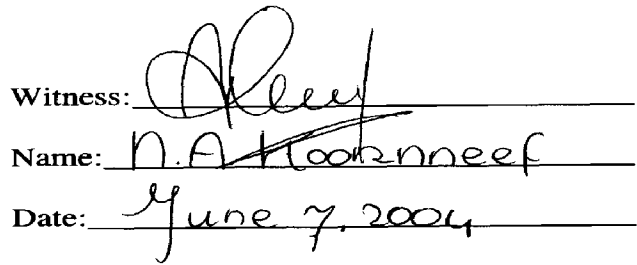 Witness:
Name: N.A Hoornneef
Date: June 7, 2004